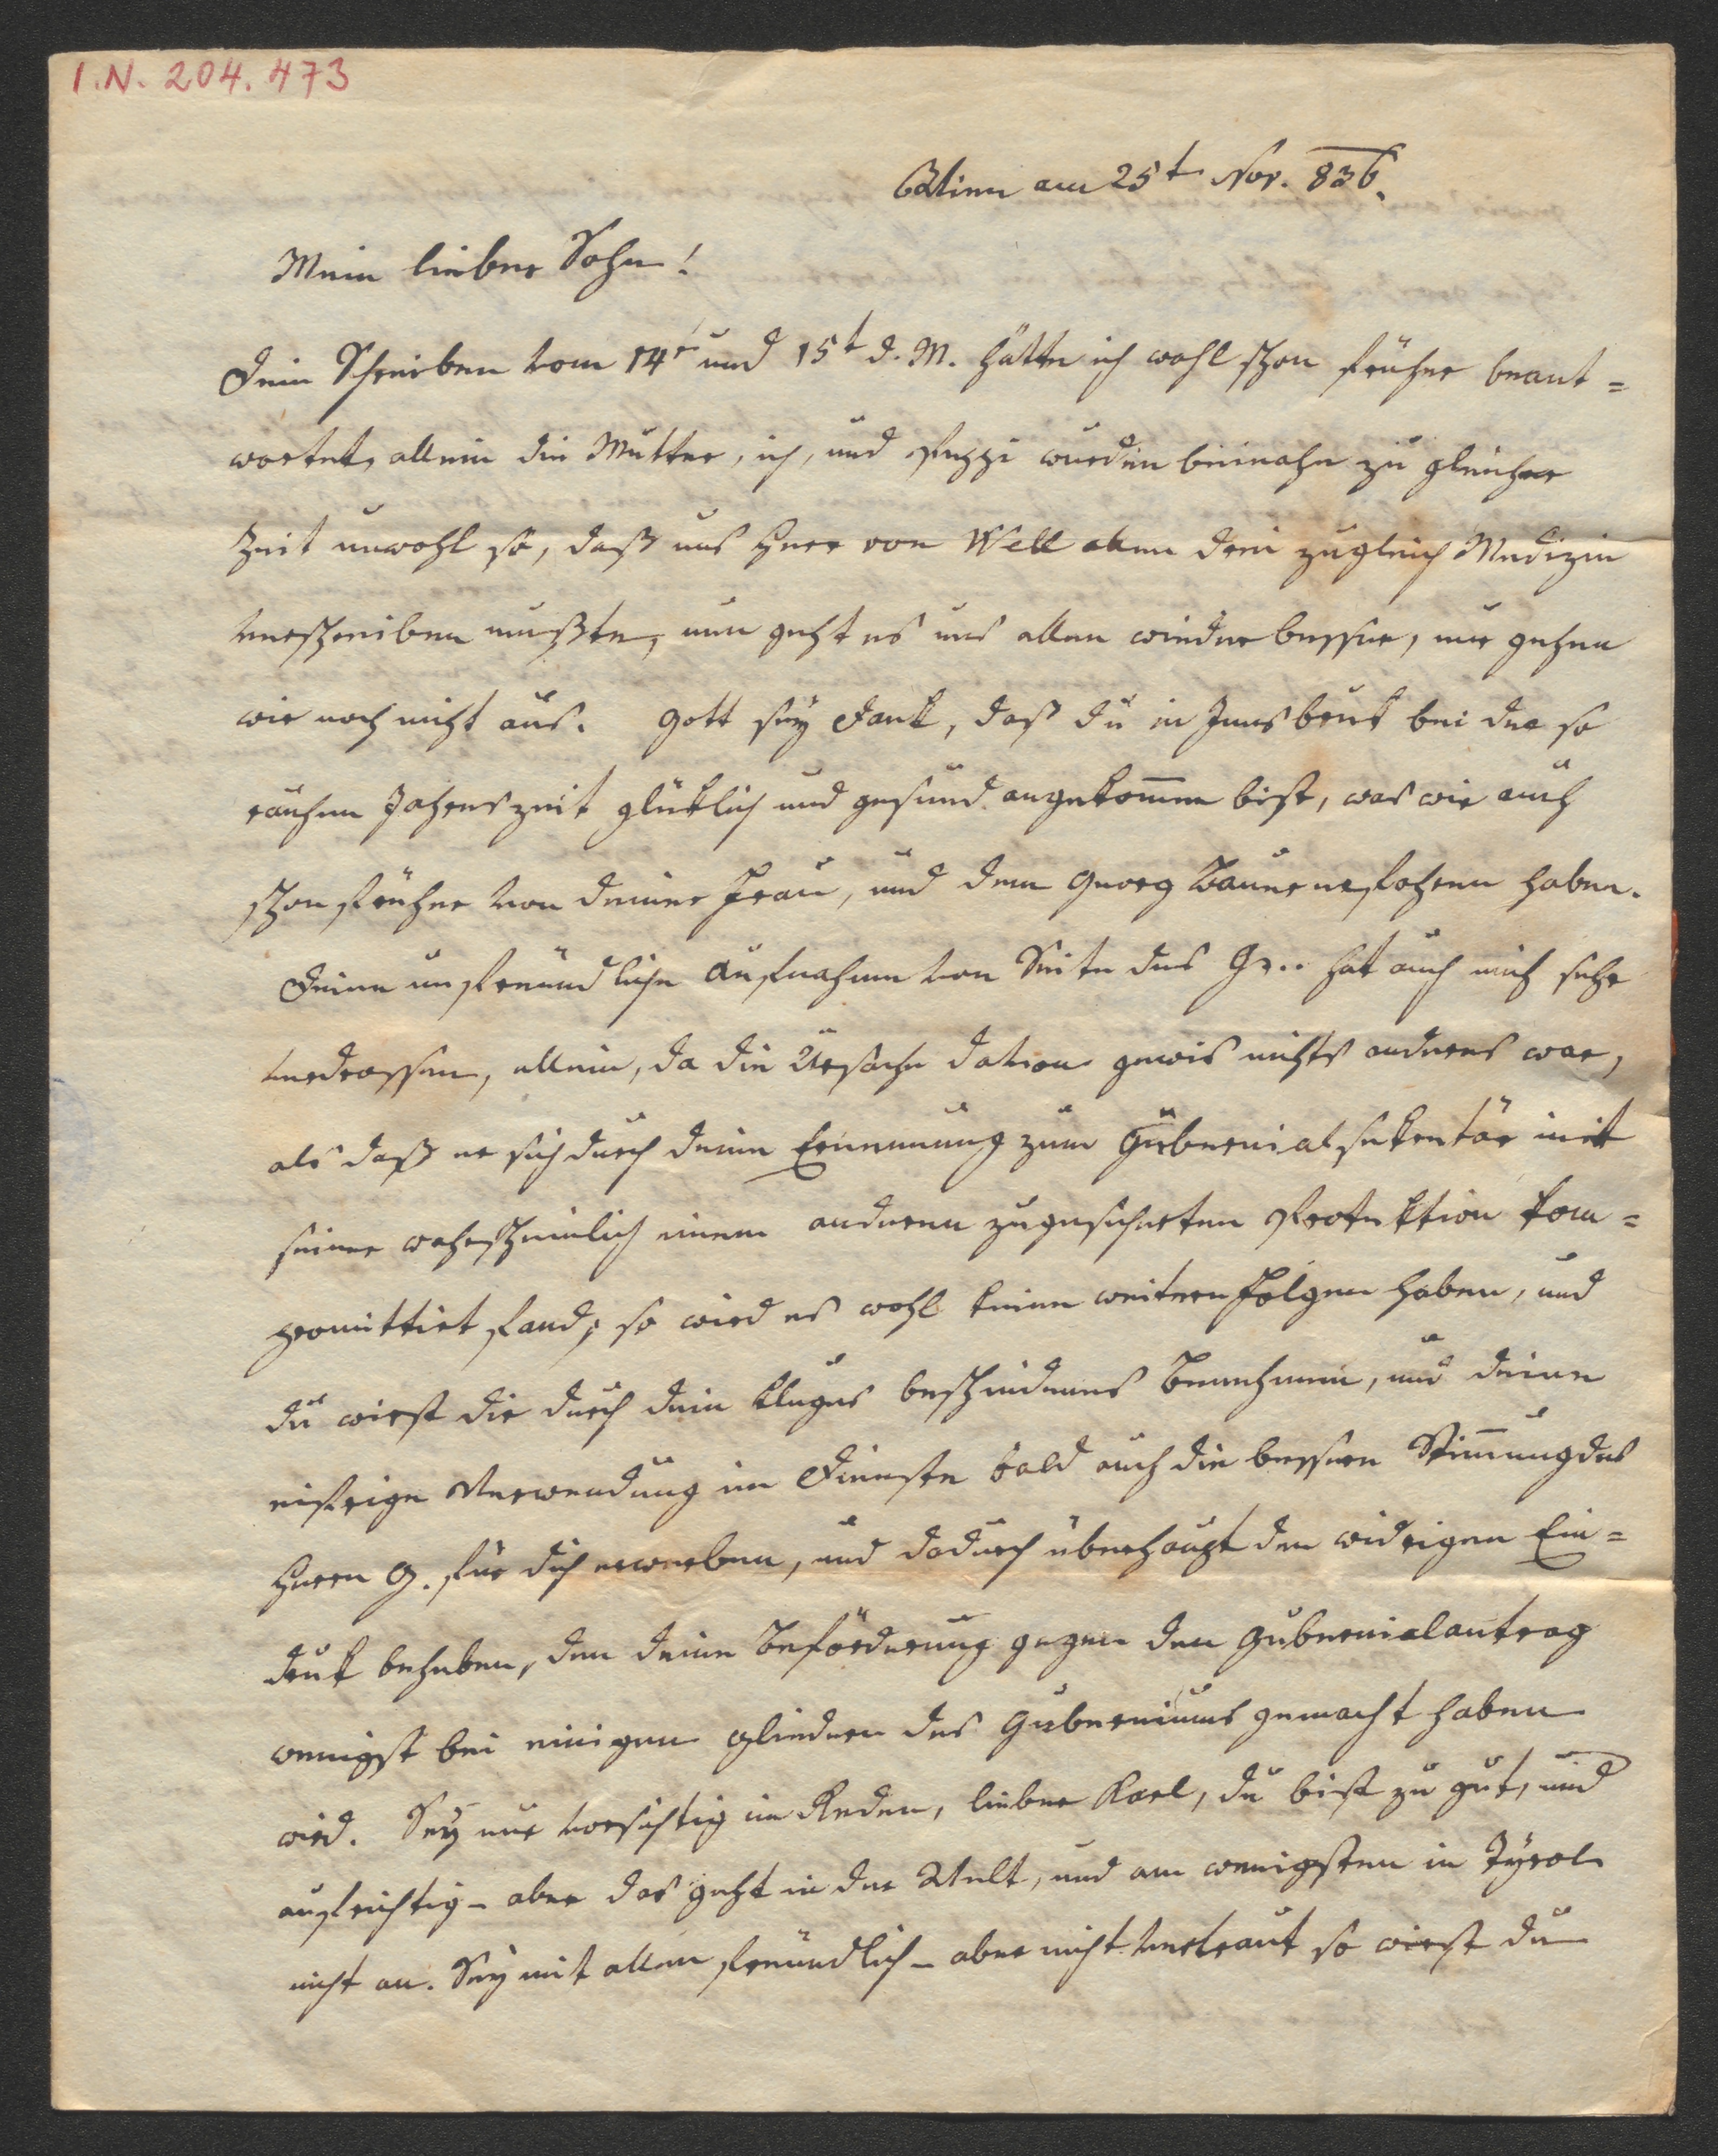 I.N. 204.473
Wien am 25t Nov. 836.
Mein lieber Sohn!
Dein Schreiben vom 14t und 15t d. M. hätte ich wohl schon früher beant=
wortet, allein die Mutter, ich, und Peppi wurden beinahe zu gleicher
Zeit unwohl so, daß uns Herr von Well allen drei zugleich Medizin
verschreiben mußte, nun geht es uns allen wieder besser, nur gehen
wir noch nicht aus. Gott sey Dank, daß du in Innsbruk bei der so
rauhen Jahreszeit glüklich und gesund angekom̅en bist, was wir auch
schon früher von deiner Frau, und dem Georg Bauer erfahren haben.
Deine unfreundliche Aufnahme von Seite des G... hat auch mich sehr
verdrossen, allein, da die Ursache davon gewis nichts anderes war,
als daß er sich durch deine Ernennung zum Gubernialsekretär mit
seiner wahrscheinlich einem anderen zugesicherten Protektion kom=
promittirt fand; so wird es wohl keine weiteren Folgen haben, und
du wirst dir durch dein kluges bescheidenes Benehmen, und deine
eifrige Verwendung im Dienste bald auch die bessere Stim̅ung des
Herrn G. für dich erwerben, und dadurch überhaupt den widrigen Ein=
druk beheben, den deine Beförderung gegen den Gubernialantrag
wenigst bei einigen Gliedern des Guberniums gemacht haben
wird. Sey nur vorsichtig im Reden, lieber Karl, du bist zu gut, und
aufrichtig - aber das geht in der Welt, und am wenigsten in Tyrol
nicht an. Sey mit allen freundlich - aber nicht vertraut so wirst du